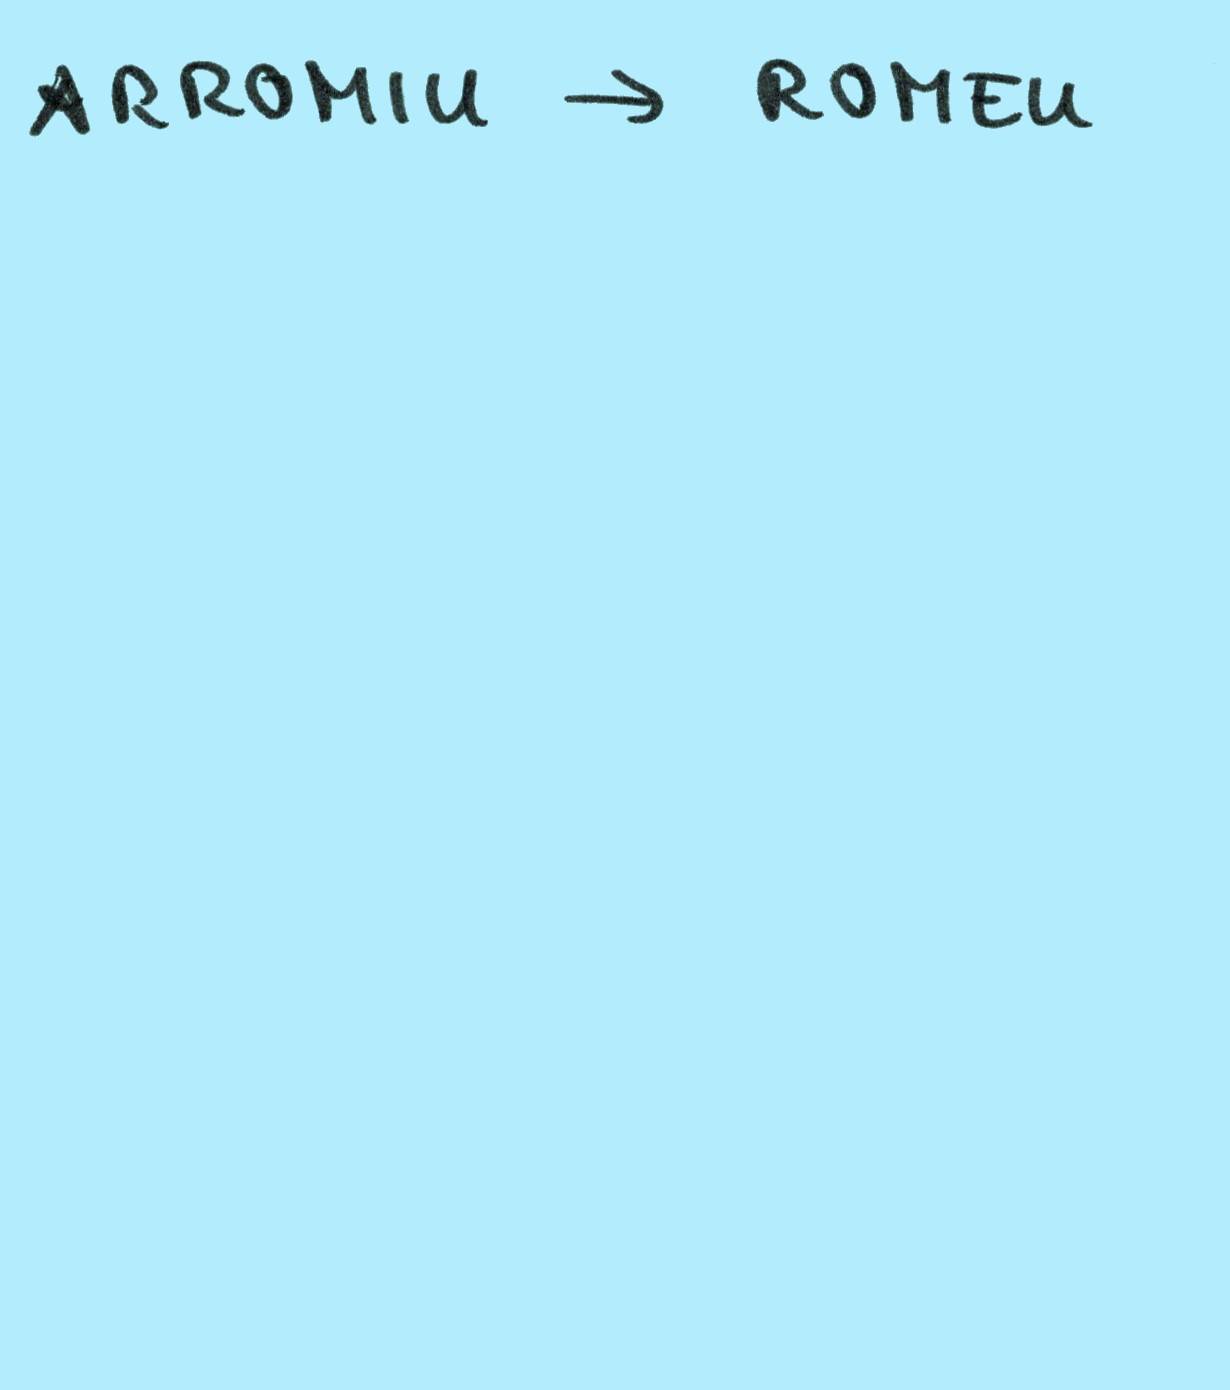 ARROMIU → ROMEU